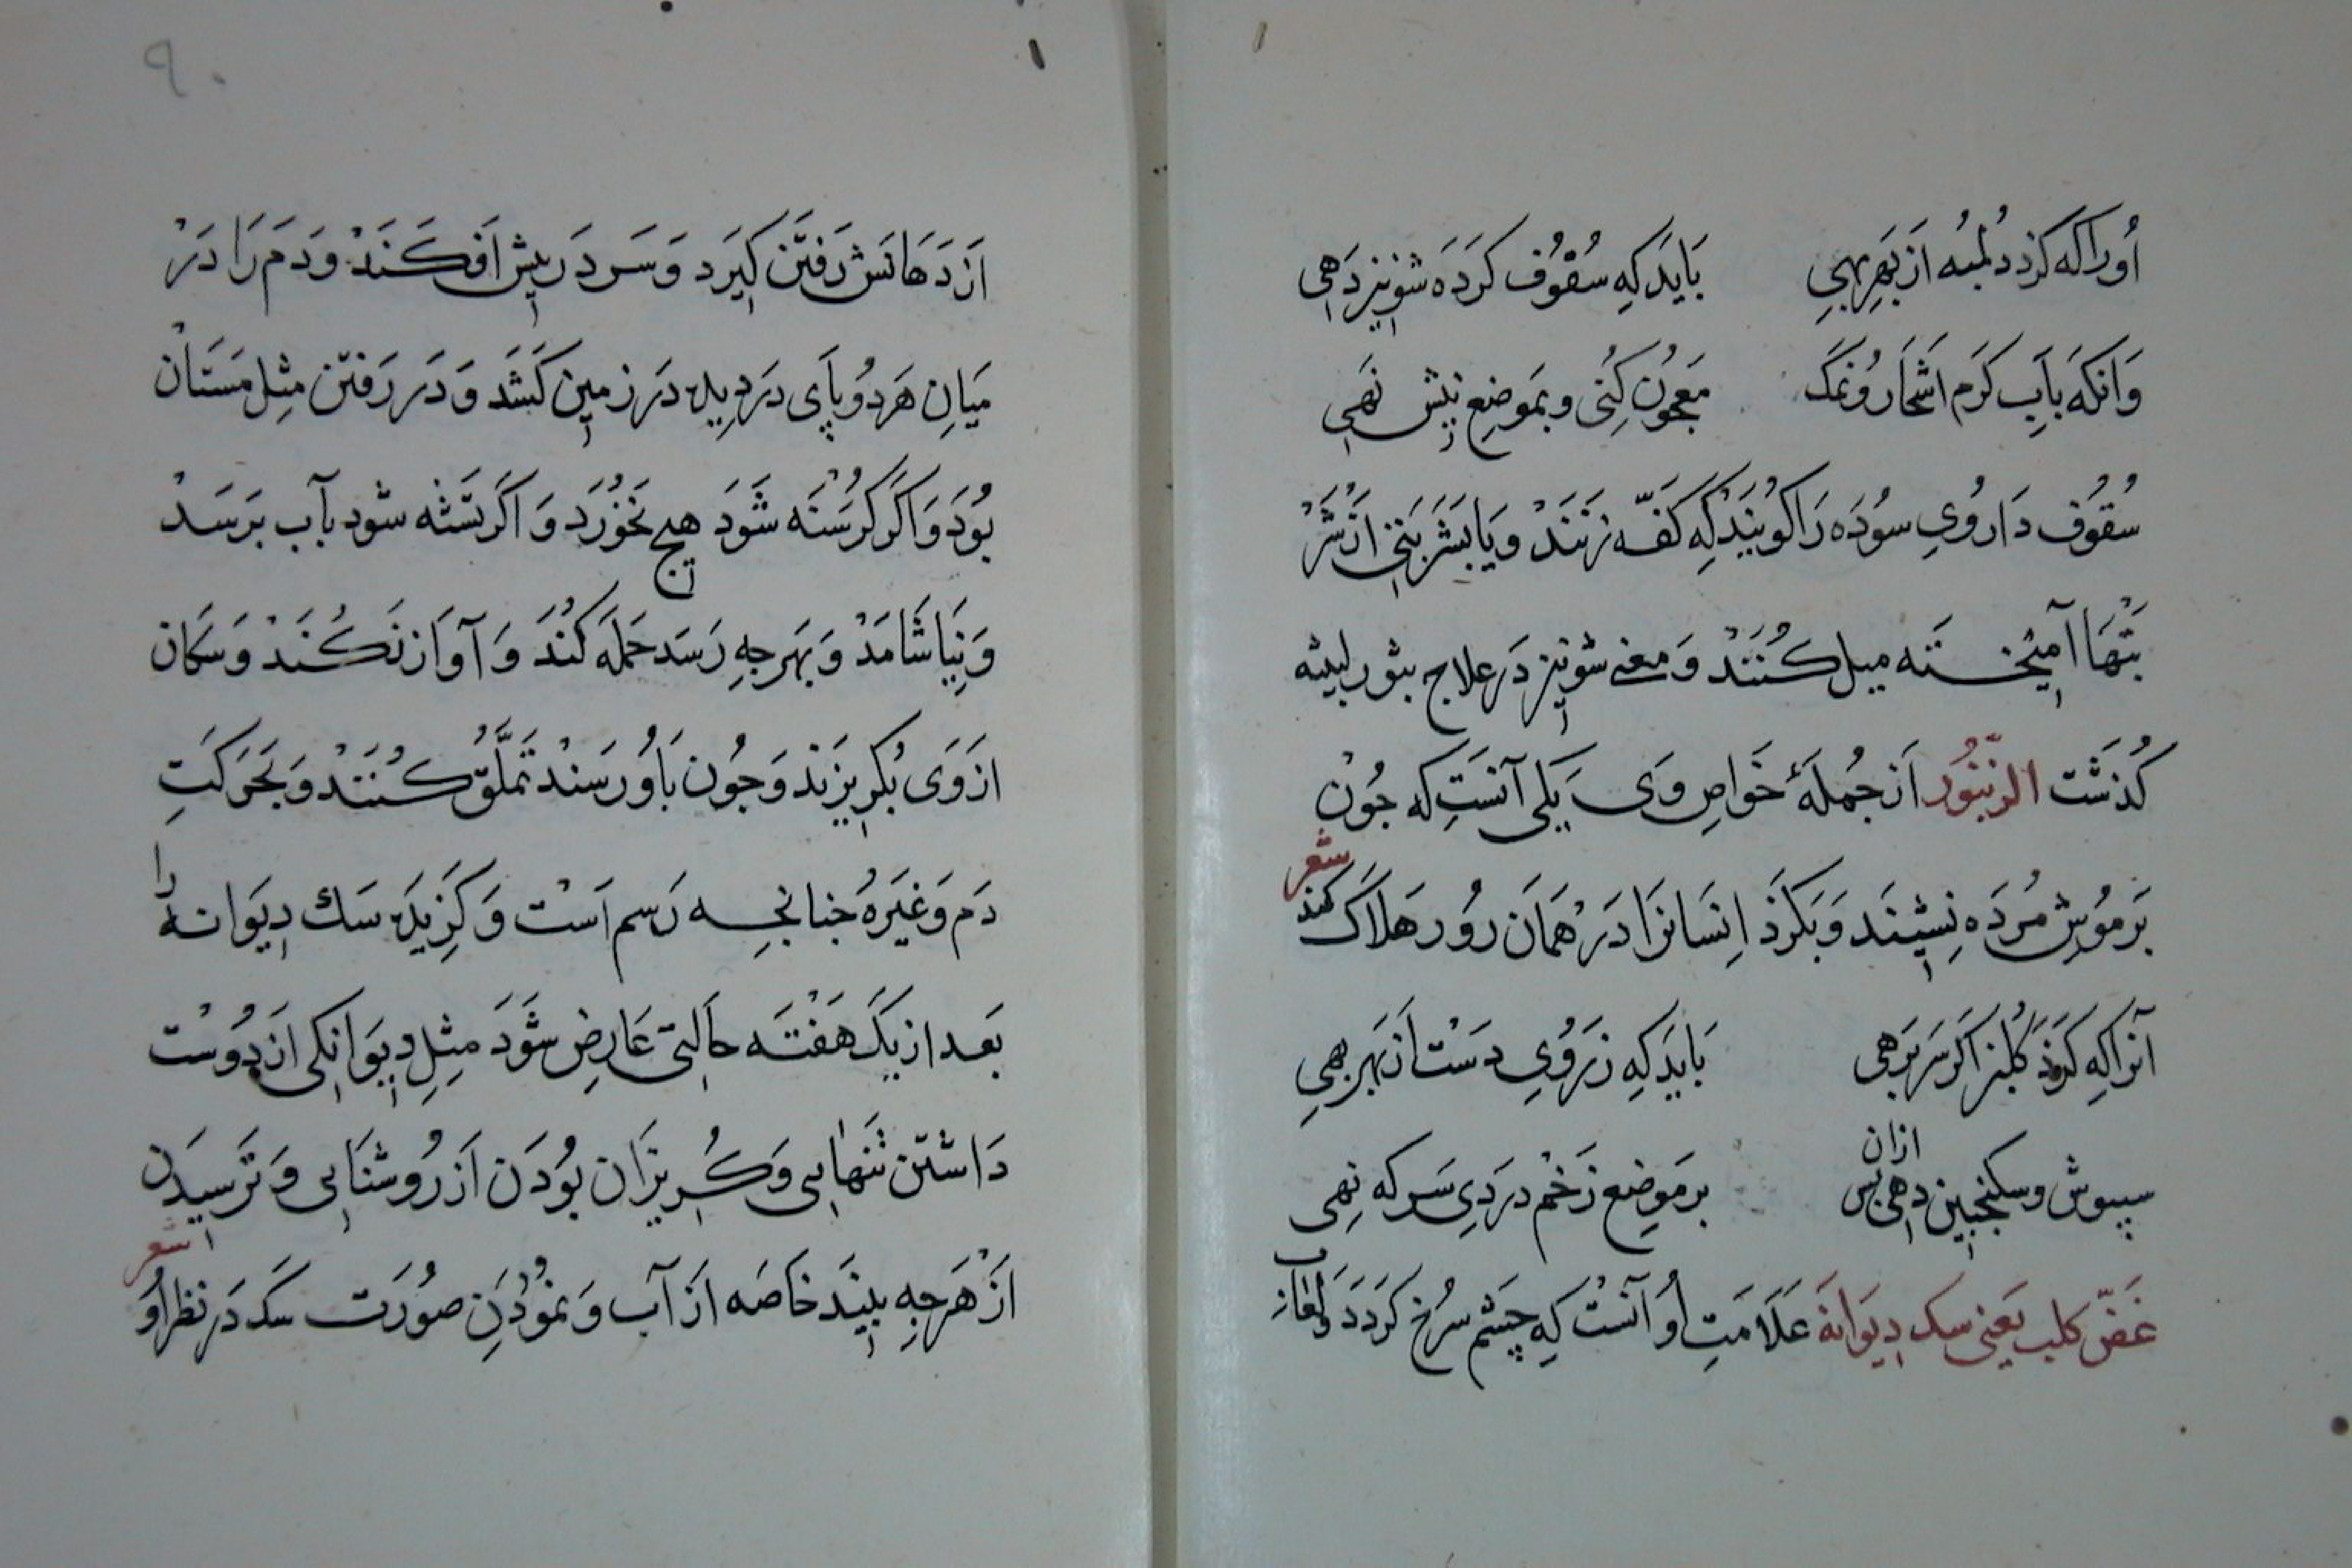 اُورَا که کزد دُلمبُه اَز بَهرِ بهی بَایَد کِه سُقُوف کَردَه شونیز دَهی
وَانکَه بآبِ کَرَم اشخَار وُنمَک مَعجُون کُنی و بمَوضِعِ نیش نهی
سُقُوف دَارُویِ سُودَه رَا کُویَند کِه کَفّه زنَند وَیَا بشَربَتی اَز شَر
بَتهَا آمیخته میل کُنَند وَ معنی شونیز دَر علاج بثور لبیثه
کُذشَت الزنبُور اَز جُملَهٔ خَواصِ وَی یَکی آنَست که جُون
شعر
بَر مُوشِ مُردَه نِشیند وَ بَکَزَد اِنسَانرَا دَر هَمَان روز هَلَاک کند
آنرا که کَزَد کَلیز اَکَر سَر بَرهی بَایَد کِه زَرَوی دَست اَز بَهر بهی
سپیوش و سکنجبین دهی بس ازان بر مَوضِع زَخم دردیِ سَرکه نهی
عَضّ کلب یَعنی سک دیوَانَه عَلَامَتِ اُو آنَست کِه چَشم سُرخ کَردَد وَ لُعاب
از دَهَانَش رَفتن کیرَد وَ سَر دَر پیش اَفکَنَد وَ دَم رَا دَر
مَیَانِ هَر دُو پَای دَر دیده دَر زمین کَشَد وَ دَر رَفتن مِثل مَستَان
بُوَد وَ اَکَر کُرسنَه شَوَد هیچ نَخُورَد وَ اَکَر تشنه شود بآب برَسَد
وَ نیَاشَامَد وَ بَهَر جِه رَسَد حَملَه کُند وَ آوَاز نَکُنَد وَ سکان
از وَی بُکریزَند وَ جُون بَاُو رَسَند تَملُّق کُنَند وَ بَحَرَکَتِ
دَم وَ غَیرَهُ جنانجه رَسم اَست وَ کَزیدَه سَک دیوَانه را
بَعد از یک هَفتَه حَالَتی عَارِض شَوَد مِثلِ دیوَانکی اَز دُوست
دَاشتن تَنهَایی وَ کُریزَان بُودَن اَز رُوشنَایی وَ تَرسیدن
شعر
اَز هَر جِه بینَد خَاصَه اَز آب وَ نمُودَنِ صُورَت سَک دَر نظر اُو
۹۰